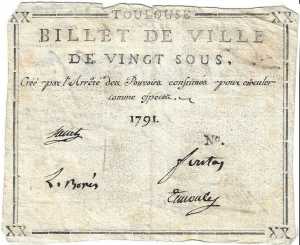 XX TOULOUSE XX
BILLET DE VILLE
DE VINGT SOUS.
Créé par l'Arrêté des Pouvoirs constitués pour circuler
comme espèces.
1791.
No.
XX XX